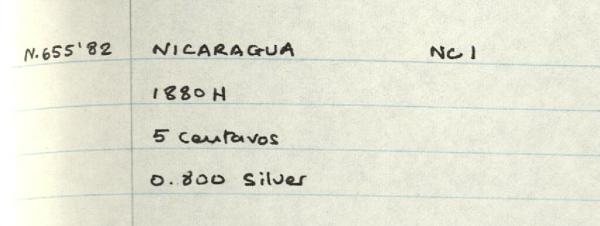 N.655'82 NICARAGUA NC1
1880H
5 Centavos
0.800 Silver